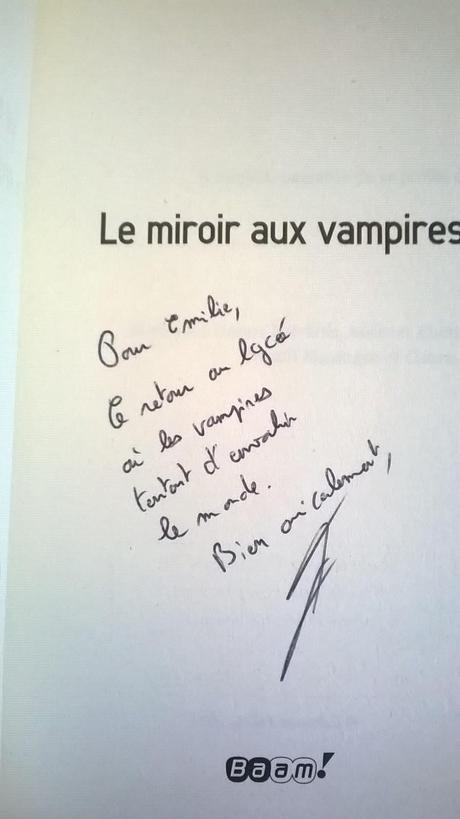 Le miroir aux vampires
Pour Emilie,
Ce retour au lycée
où les vampires
tentent d'envahir
le monde.
Bien amicalement,
Baam!